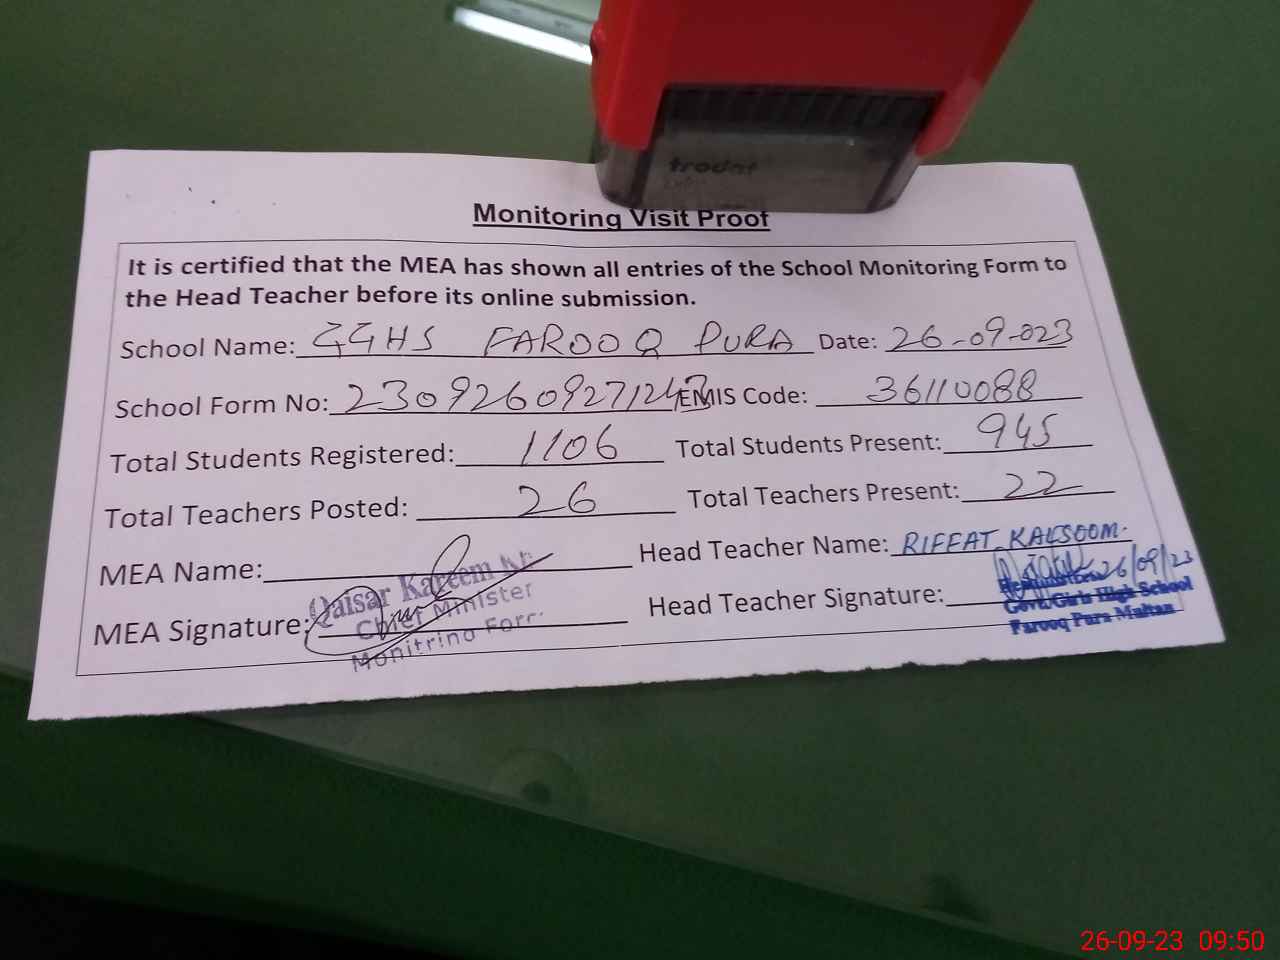 trodat
Monitoring Visit Proof
It is certified that the MEA has shown all entries of the School Monitoring Form to
the Head Teacher before its online submission.
School Name: GGHS FAROOQ PURA Date: 26-09-023
School Form No: 2309260927124 EMIS Code: 36110088
Total Students Registered: 1106 Total Students Present: 945
Total Teachers Posted: 26 Total Teachers Present: 22
MEA Name: Head Teacher Name: RIFFAT KALSOOM.
Qaisar Kareem
Chief Minister
MEA Signature: Head Teacher Signature: 26/09/23
Govt. Girls High School
Farooq Pura Multan
26-09-23 09:50